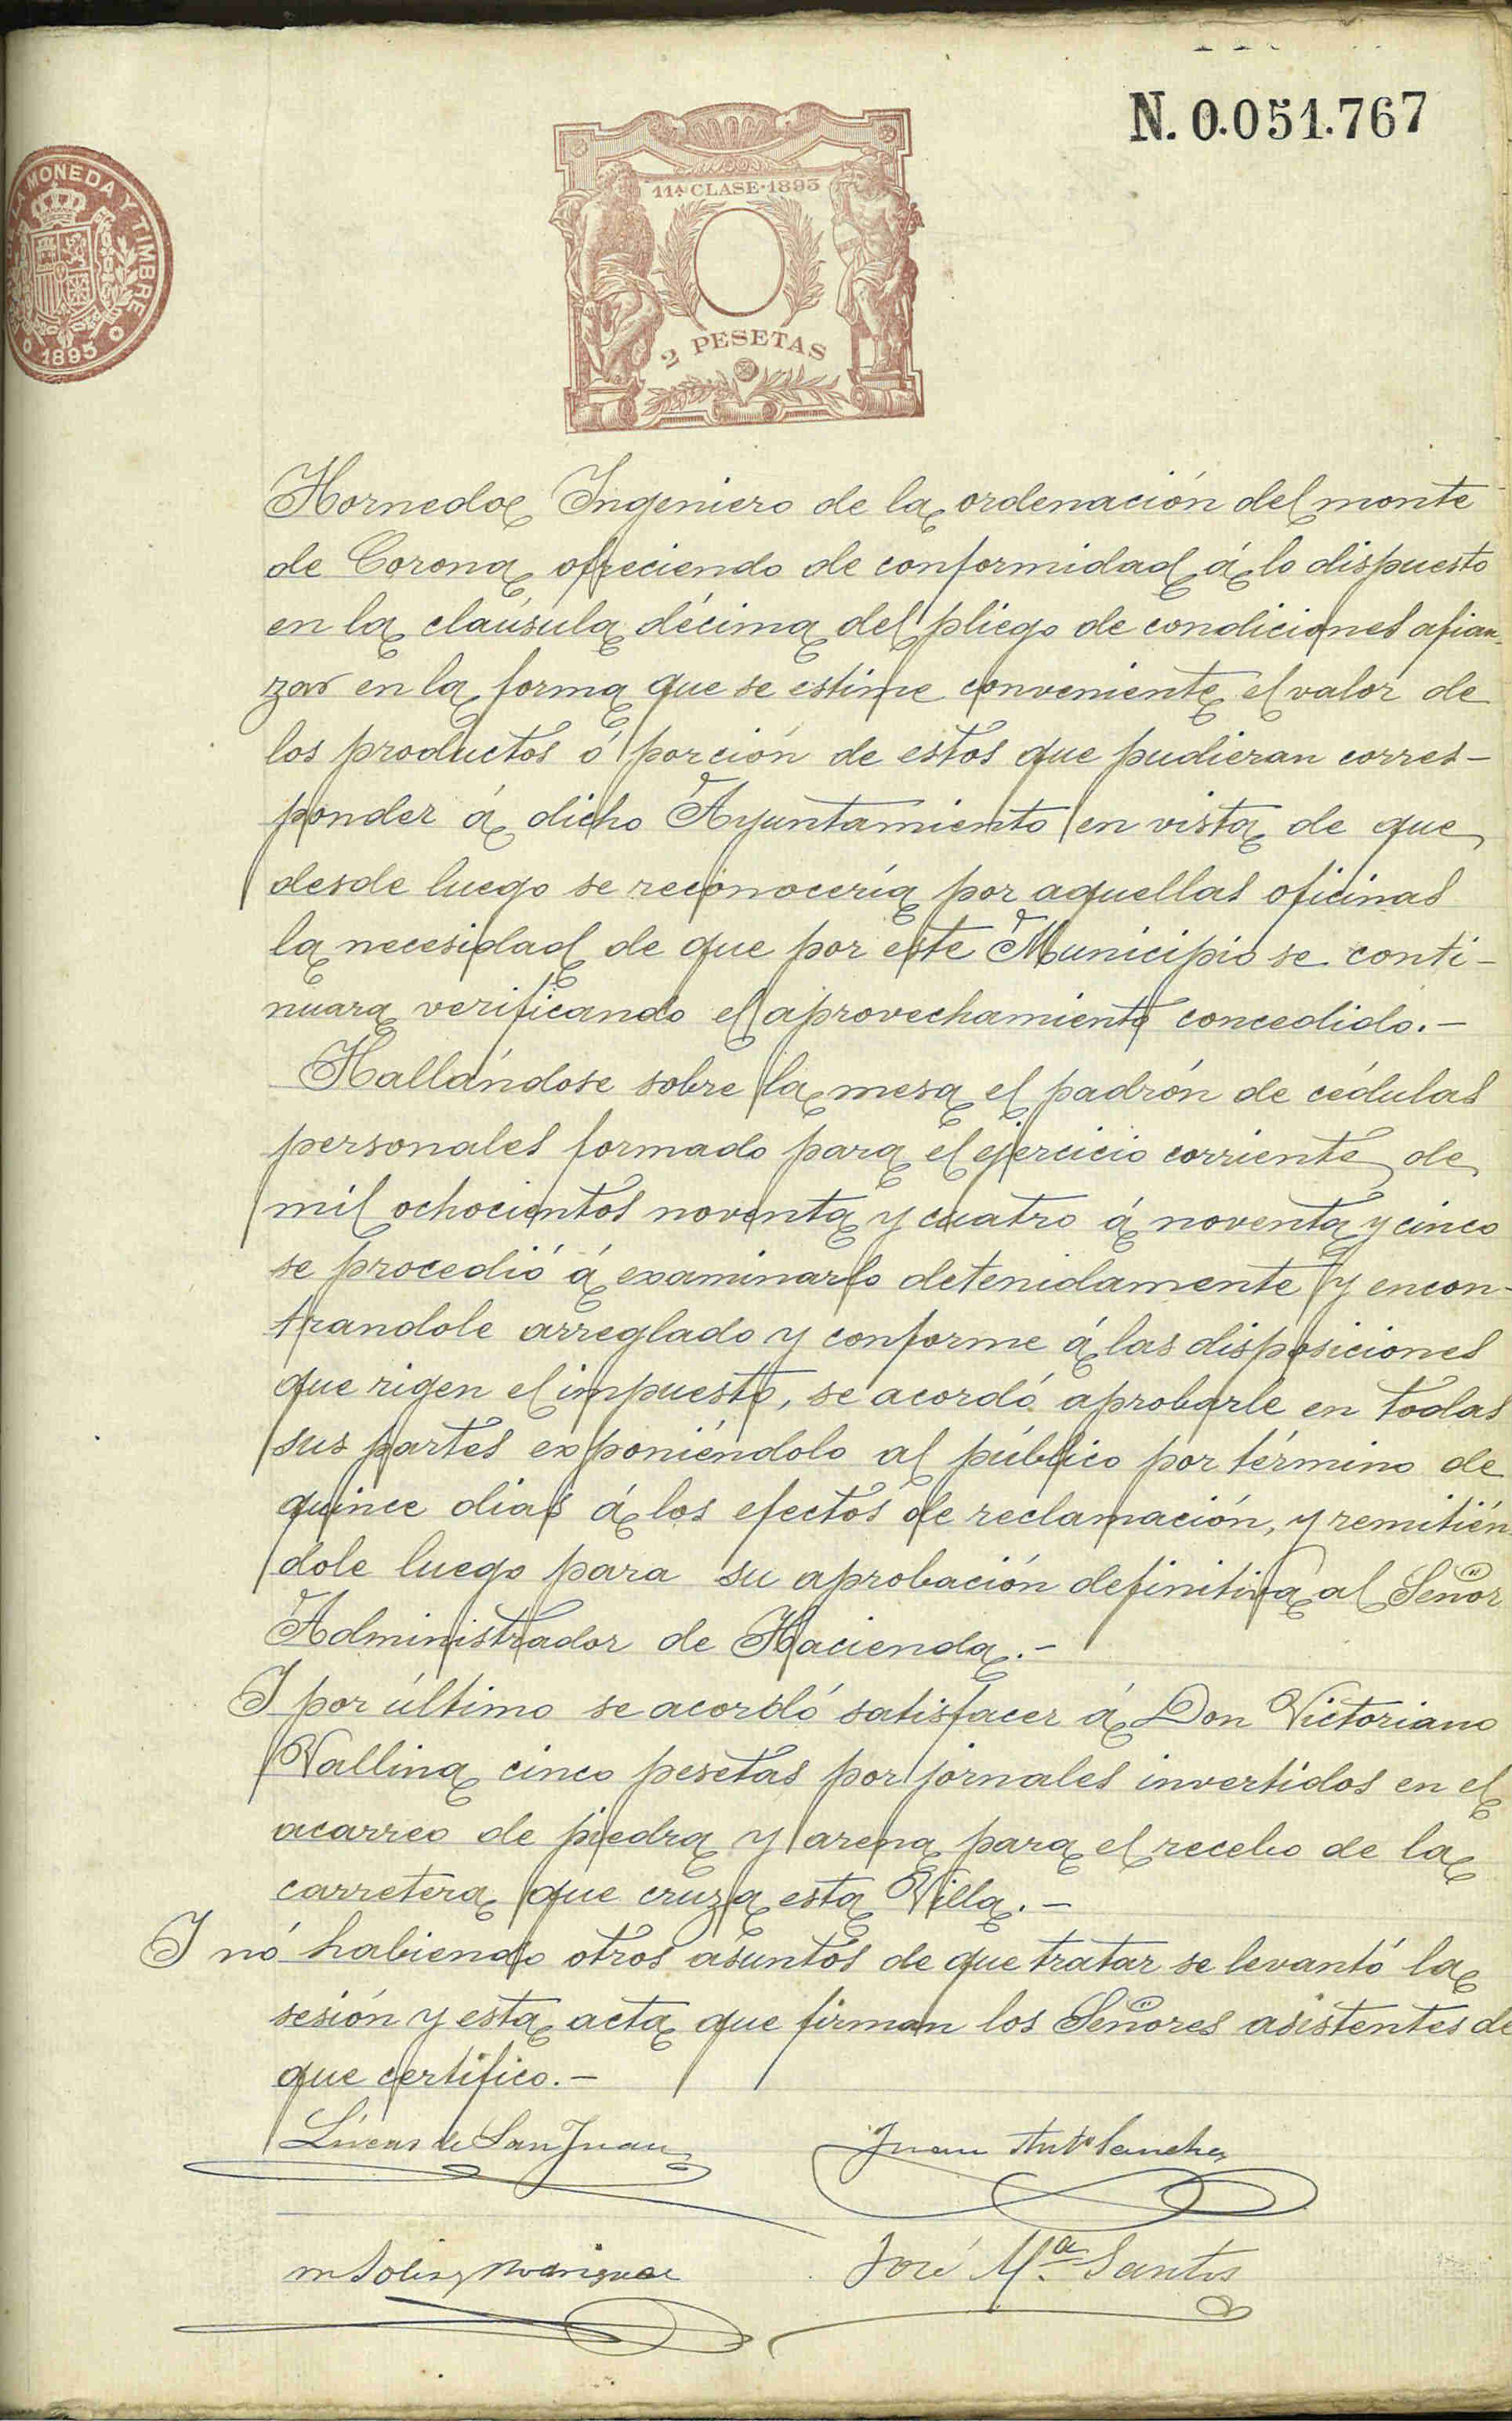 N. 0.051.767
MONEDA Y TIMBRE
1895
11ª CLASE·1895
2 PESETAS
Hornedo Ingeniero de la ordenación del monte
de Corona ofreciendo de conformidad á lo dispuesto
en la claúsula décima del pliego de condiciones afian-
zar en la forma que se estime conveniente el valor de
los productos ó porción de estos que pudieran corres-
ponder á dicho Ayuntamiento en vista de que
desde luego se reconocería por aquellas oficinas
la necesidad de que por este Municipio se conti-
nuara verificando el aprovechamiento concedido.-
Hallándose sobre la mesa el padrón de cédulas
personales formado para el ejercicio corriente de
mil ochocientos noventa y cuatro á noventa y cinco
se procedió á examinarlo detenidamente y encon-
trandole arreglado y conforme á las disposiciones
que rigen el impuesto, se acordó aprobarle en todas
sus partes exponiéndolo al público por término de
quince dias á los efectos de reclamación, y remitién
dole luego para su aprobación definitiva al Señor
Administrador de Hacienda.-
I por último se acordó satisfacer á Don Victoriano
Vallina cinco pesetas por jornales invertidos en el
acarreo de piedra y arena para el recebo de la
carretera que cruza esta Villa.-
I nó habiendo otros asuntos de que tratar se levantó la
sesión y esta acta que firman los Señores asistentes de
que certifico.-
Lúcas de San Juan
Juan Antº Sanchez
José Mª Santos